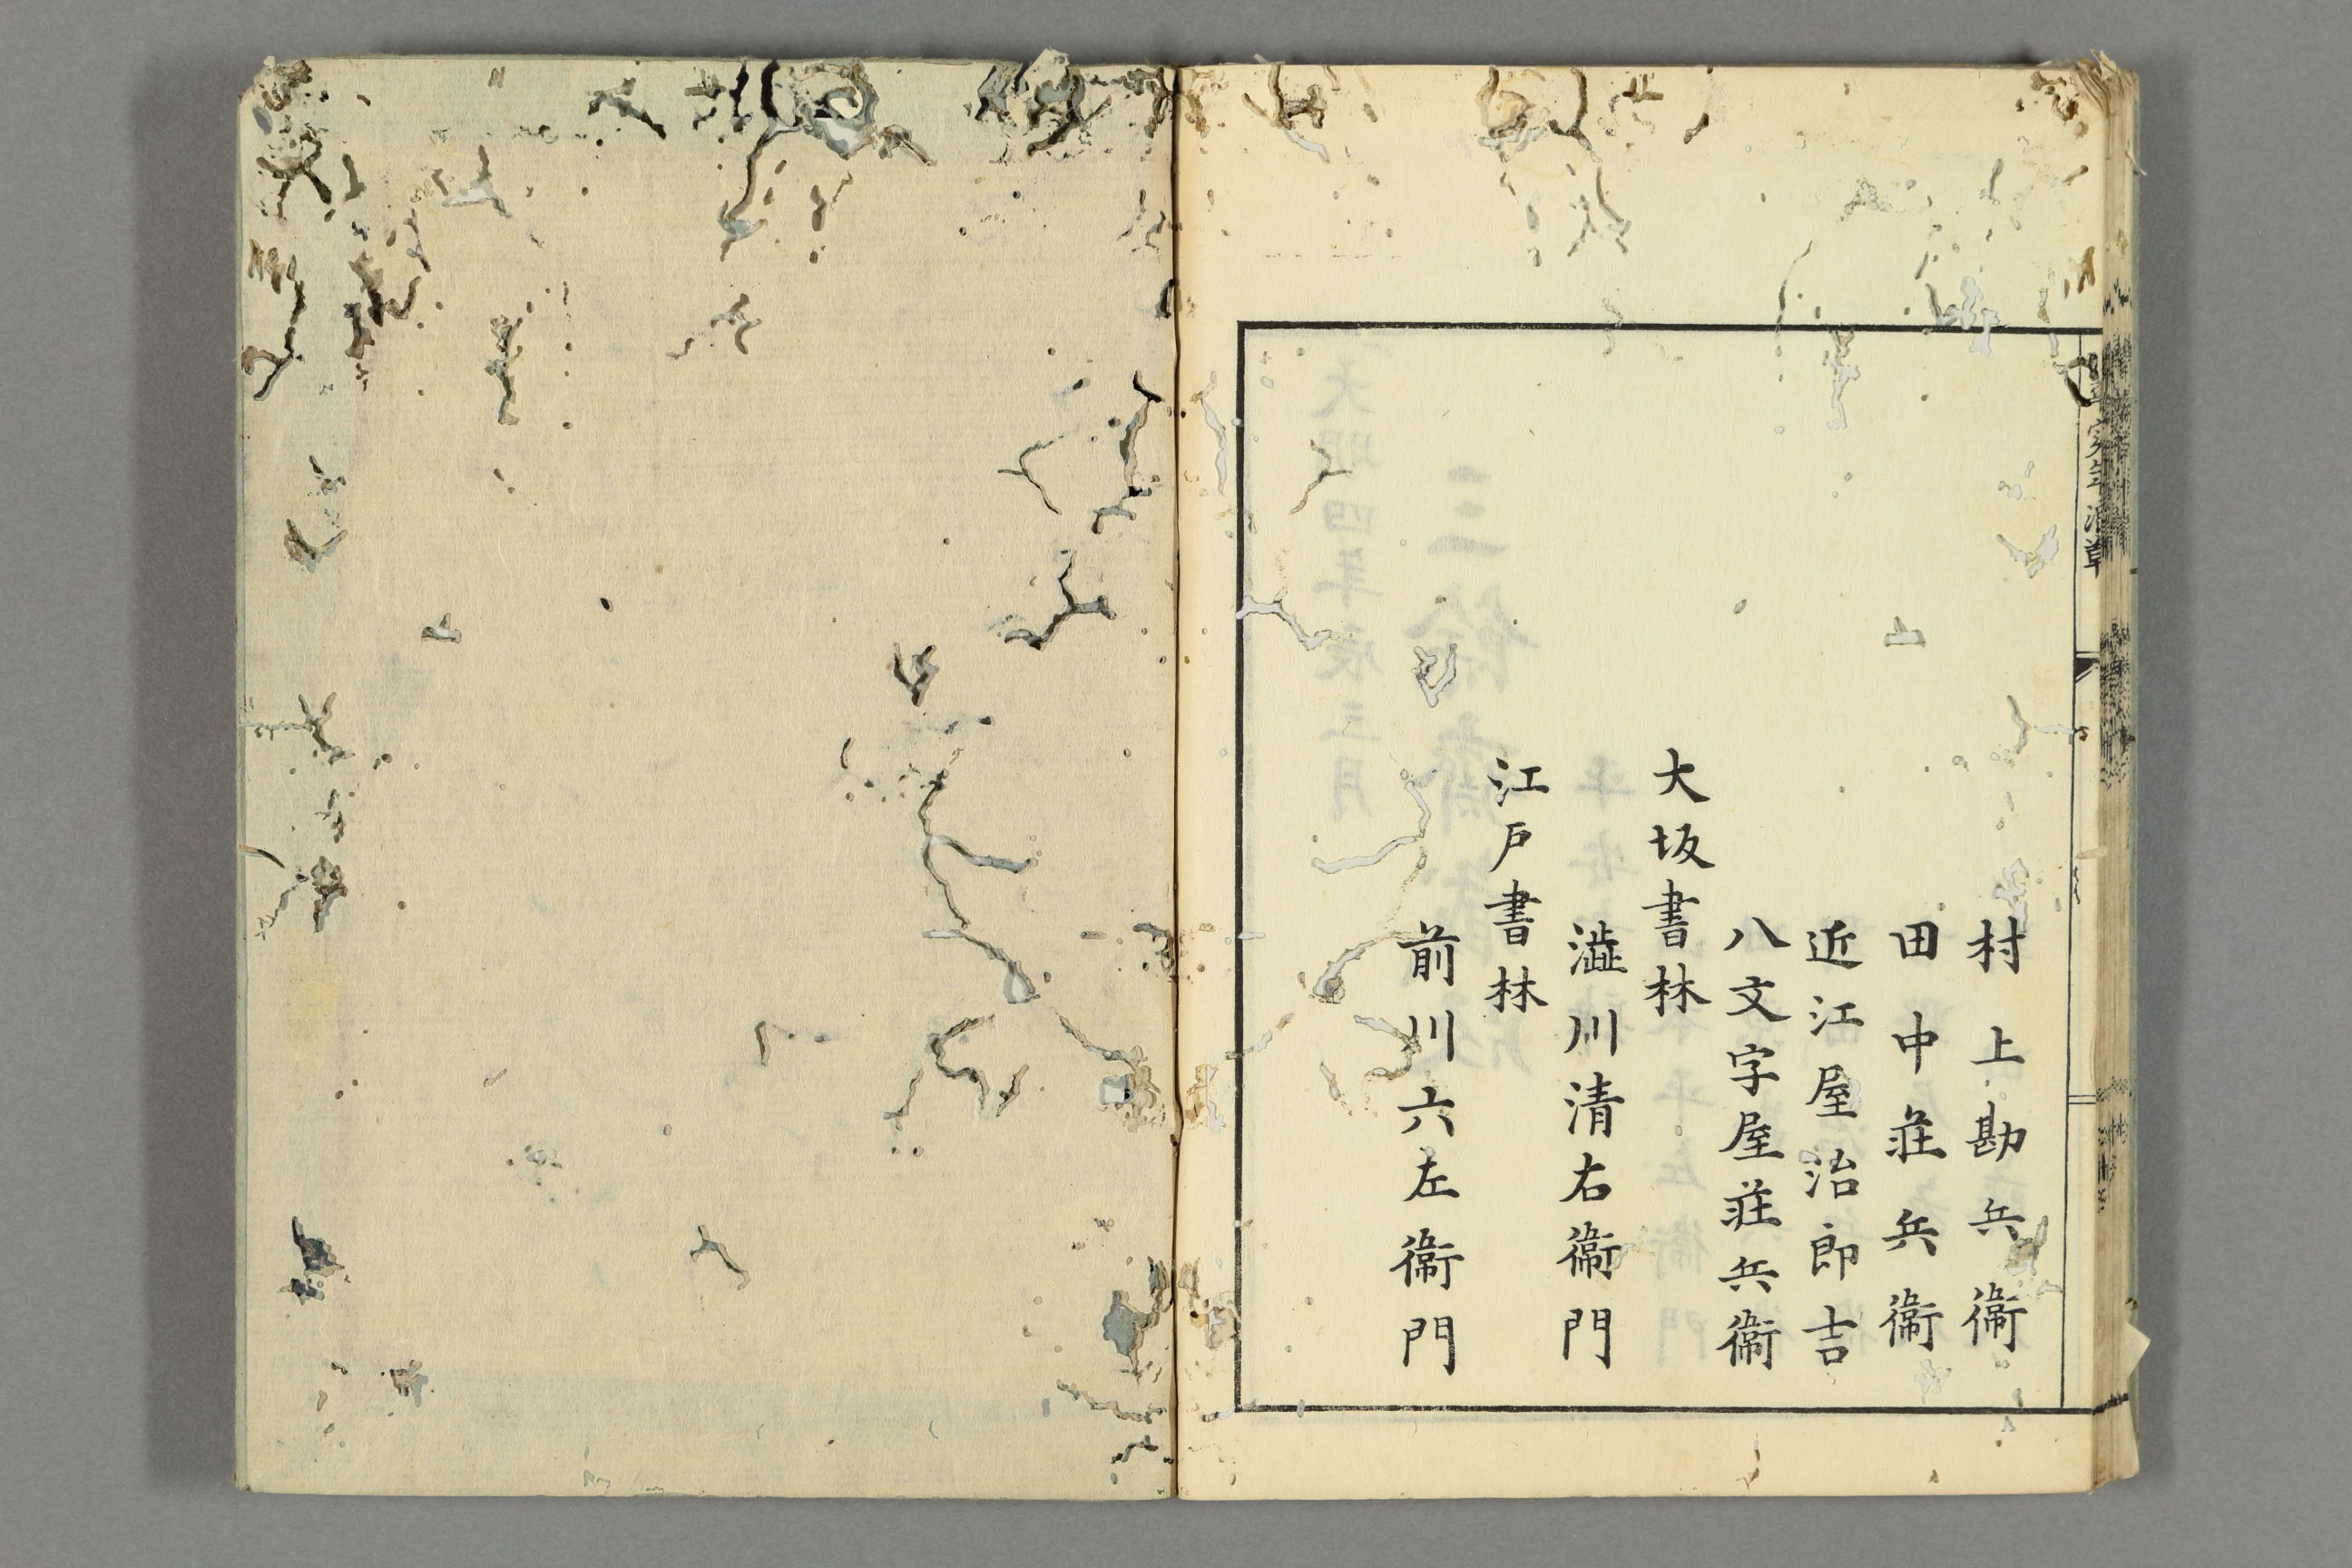 村上勘兵衞
田中莊兵衞
近江屋治郎吉
八文字屋莊兵衞
大坂書林
澁川清右衞門
江戸書林
前川六左衞門